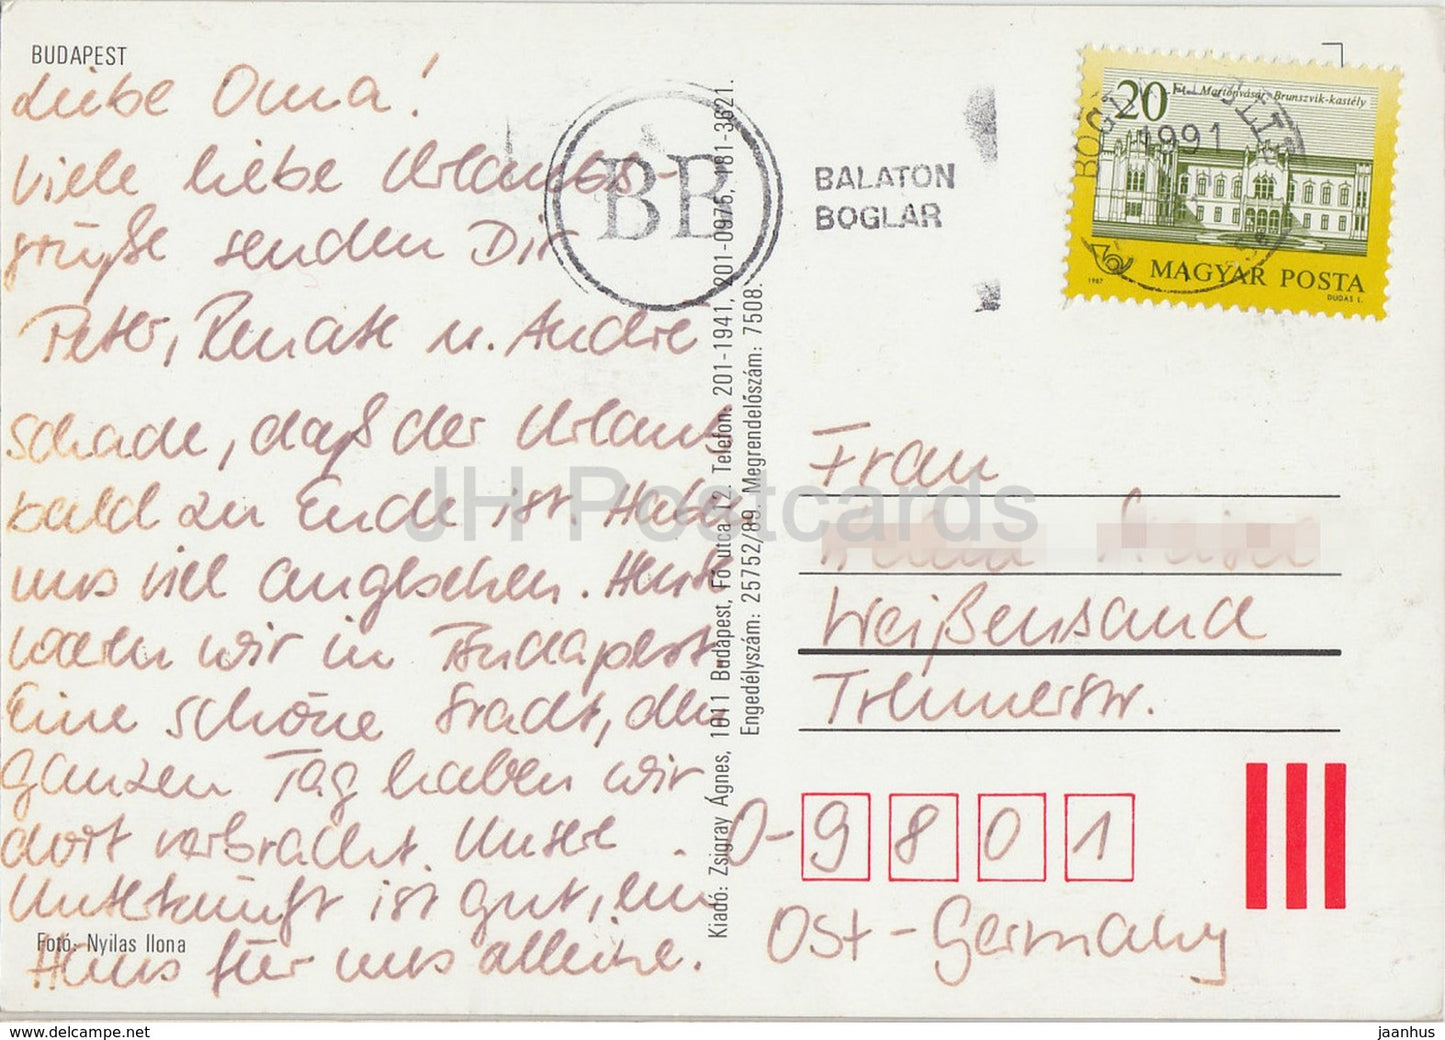 BUDAPEST
Liebe Oma!
Viele liebe Urlaubs-
grüße senden Dir
Peter, Renate u. Andre
Schade, daß der Urlaub
bald zu Ende ist. Haben
uns viel angesehen. Heute
waren wir in Budapest.
Eine schöne Stadt, den
ganzen Tag haben wir
dort verbracht. Unsere
Unterkunft ist gut, ein
Haus für uns alleine.
Foto: Nyilas Ilona
Kiadó: Zsigray Ágnes, 1011 Budapest, Fő utca 12. Telefon: 201-1941, 201-0975, 181-3621.
Engedélyszám: 25752/89. Megrendelőszám: 7508.
BB
BALATON
BOGLÁR
1991
20 Ft Martonvásár Brunszvik-kastély
MAGYAR POSTA
1987 DUDÁS L.
Frau
Weißensand
O-9801
Ost-Germany
JH Postcards
www.delcampe.net
jaanhus